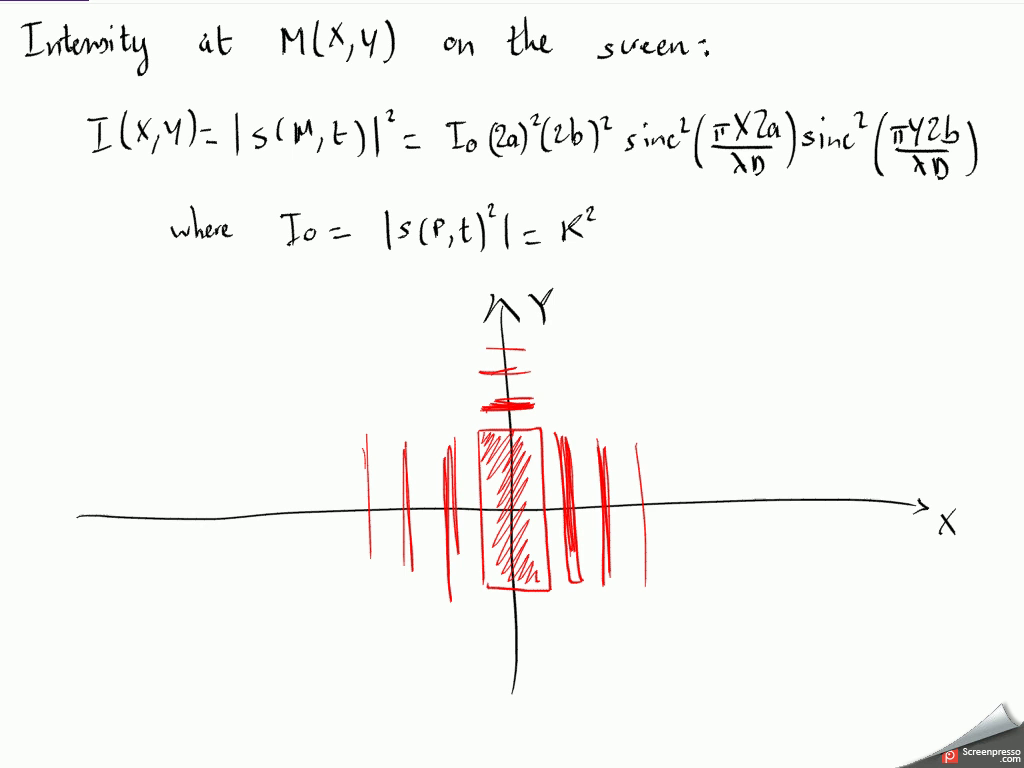 Intensity at M(X,Y) on the screen:
I(X,Y) = |s(M,t)|² = I₀ (2a)²(2b)² sinc²(πX2a/λD) sinc²(πY2b/λD)
where I₀ = |s(P,t)²| = K²
Y
X
Screenpresso
.com